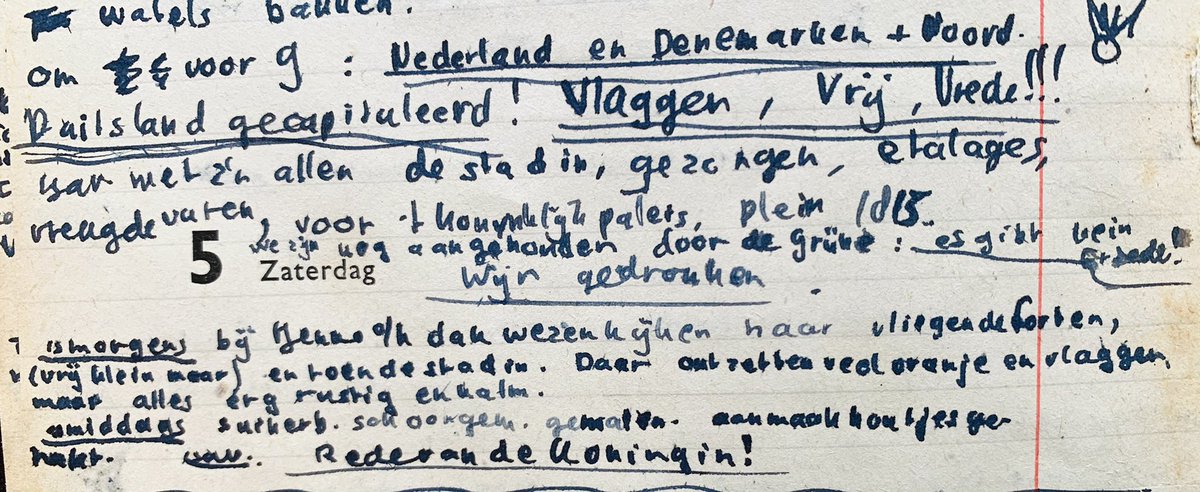 wafels bakken.
om voor 9 : Nederland en Denemarken + Noord.
Duitsland gecapituleerd! Vlaggen, Vrij, Vrede!!!
met z'n allen de stad in, gezongen, etalages,
vreugdevuren, voor 't Koninklijk paleis, plein 1815.
We zijn nog aangehouden door de Grüne: es gibt kein Friede!
5 Zaterdag
Wijn gedronken
smorgens bij Henno o/h dak wezen kijken naar vliegende forten,
(vrij klein maar) en toen de stad in. Daar ontzetten veel oranje en vlaggen,
maar alles erg rustig en kalm.
smiddags suikerb. schoongem. gemalen. aanmaakhoutjes ge-
hakt. Rede van de Koningin!